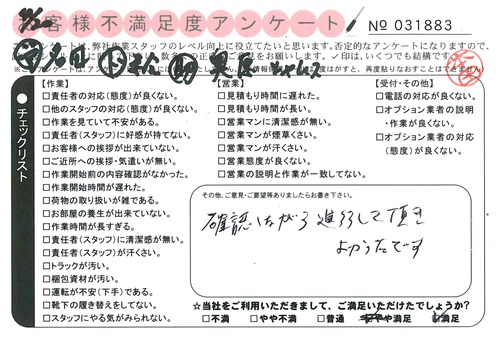 お客様不満足度アンケート
No 031883
【作業】
□責任者の対応(態度)が良くない。
□他のスタッフの対応(態度)が良くない。
□作業を見ていて不安がある。
□責任者(スタッフ)に好感が持てない。
□お客様への挨拶が出来ていない。
□ご近所への挨拶・気遣いが無い。
□作業開始前の内容確認がなかった。
□作業開始時間が遅れた。
□荷物の取り扱いが雑である。
□お部屋の養生が出来ていない。
□作業時間が長すぎる。
□責任者(スタッフ)に清潔感が無い。
□責任者(スタッフ)が汗くさい。
□トラックが汚い。
□梱包資材が汚い。
□運転が不安(下手)である。
□靴下の履き替えをしてない。
□スタッフにやる気がみられない。
【営業】
□見積もり時間に遅れた。
□見積もり時間が長い。
□営業マンに清潔感が無い。
□営業マンが煙草くさい。
□営業マンが汗くさい。
□営業態度が良くない。
□営業の説明と作業が一致してない。
【受付・その他】
□電話の対応が良くない。
□オプション業者の説明
・作業が良くない。
□オプション業者の対応
(態度)が良くない。
チェックリスト
その他、ご意見・ご要望等ありましたらお書き下さい。
確認しながら進行して頂き
よかったです
☆当社をご利用いただきまして、ご満足いただけたでしょうか?
□不満 □やや不満 □普通 □やや満足 □満足